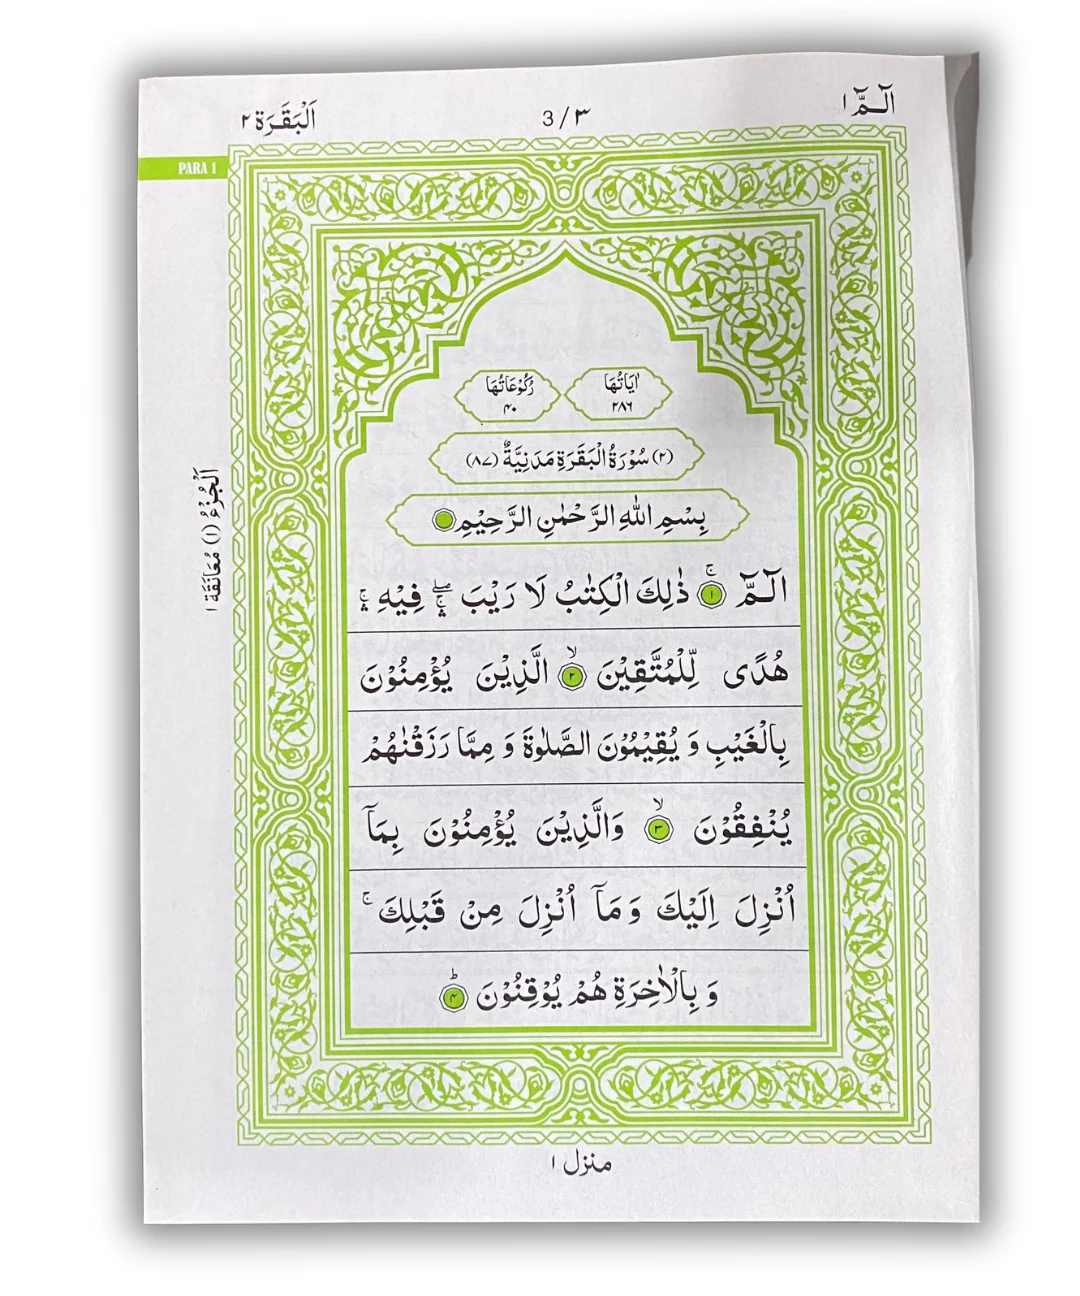 الٓـمّٓ ١
3/٣
اَلْبَقَرَة ٢
PARA 1
اٰيَاتُهَا ٢٨٦
رُكُوْعَاتُهَا ۴۰
(٢) سُوْرَةُ الْبَقَرَةِ مَدَنِيَّةٌ (٨٧)
بِسْمِ اللّٰهِ الرَّحْمٰنِ الرَّحِيْمِ
الٓـمّٓ ۚ‏ ١ ذٰلِكَ الْكِتٰبُ لَا رَيْبَ ۛۖۚ فِيْهِ ۛۚ
هُدًى لِّلْمُتَّقِيْنَ ۙ‏ ٢ الَّذِيْنَ يُؤْمِنُوْنَ
بِالْغَيْبِ وَ يُقِيْمُوْنَ الصَّلٰوةَ وَ مِمَّا رَزَقْنٰهُمْ
يُنْفِقُوْنَ ۙ‏ ٣ وَالَّذِيْنَ يُؤْمِنُوْنَ بِمَآ
اُنْزِلَ اِلَيْكَ وَ مَآ اُنْزِلَ مِنْ قَبْلِكَ ۚ
وَ بِالْاٰخِرَةِ هُمْ يُوْقِنُوْنَ ؕ ۴
اَلْجُزْءُ (١) مُعَانَقَة ١
منزل ١